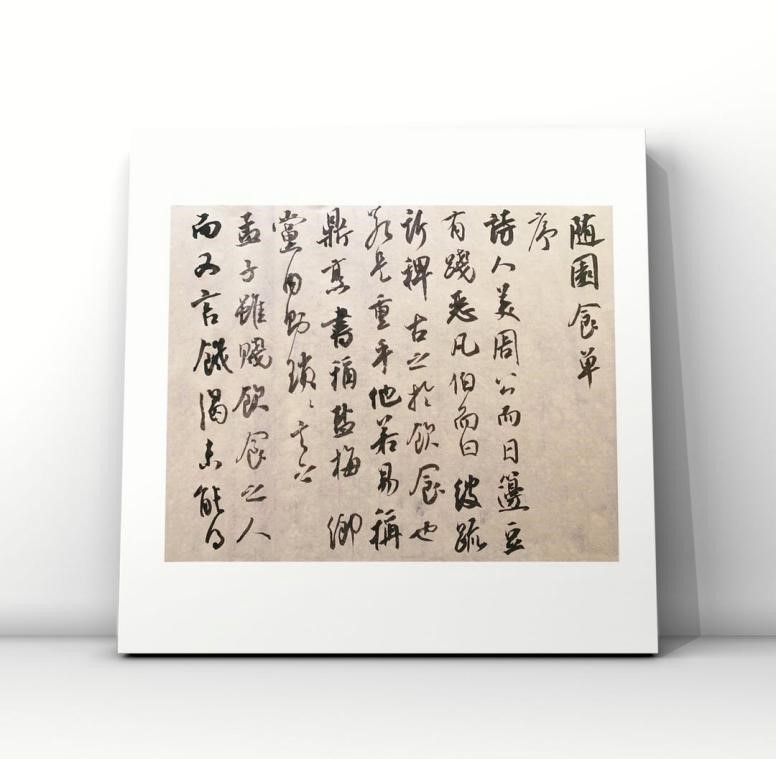 随園食单
序
詩人美周公而曰籩豆
有踐惡凡伯而曰彼疏
斯稗古之於飲食也
若是重乎他若易稱
鼎亨書稱盐梅鄉
黨內則瑣瑣言之
孟子雖賤飲食之人
而又言饑渴未能得